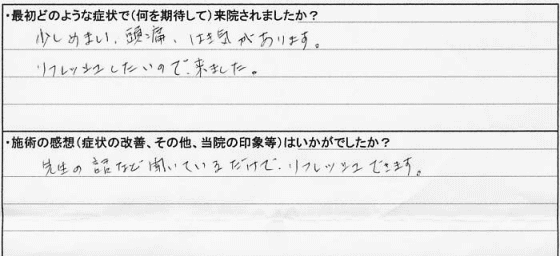 ・最初どのような症状で(何を期待して)来院されましたか？
少しめまい、頭痛、はき気があります。
リフレッシュしたいので、来ました。
・施術の感想(症状の改善、その他、当院の印象等)はいかがでしたか？
先生の話など聞いているだけで、リフレッシュできます。